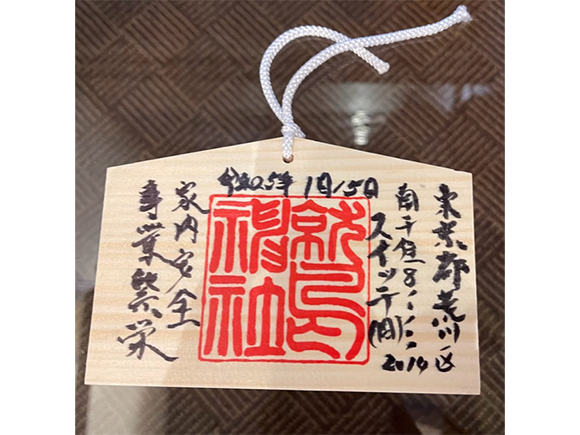 令和05年 1月15日
東京都荒川区
南千住8
2014
スイッチ(同)
鷲神社
家内安全
事業繁栄